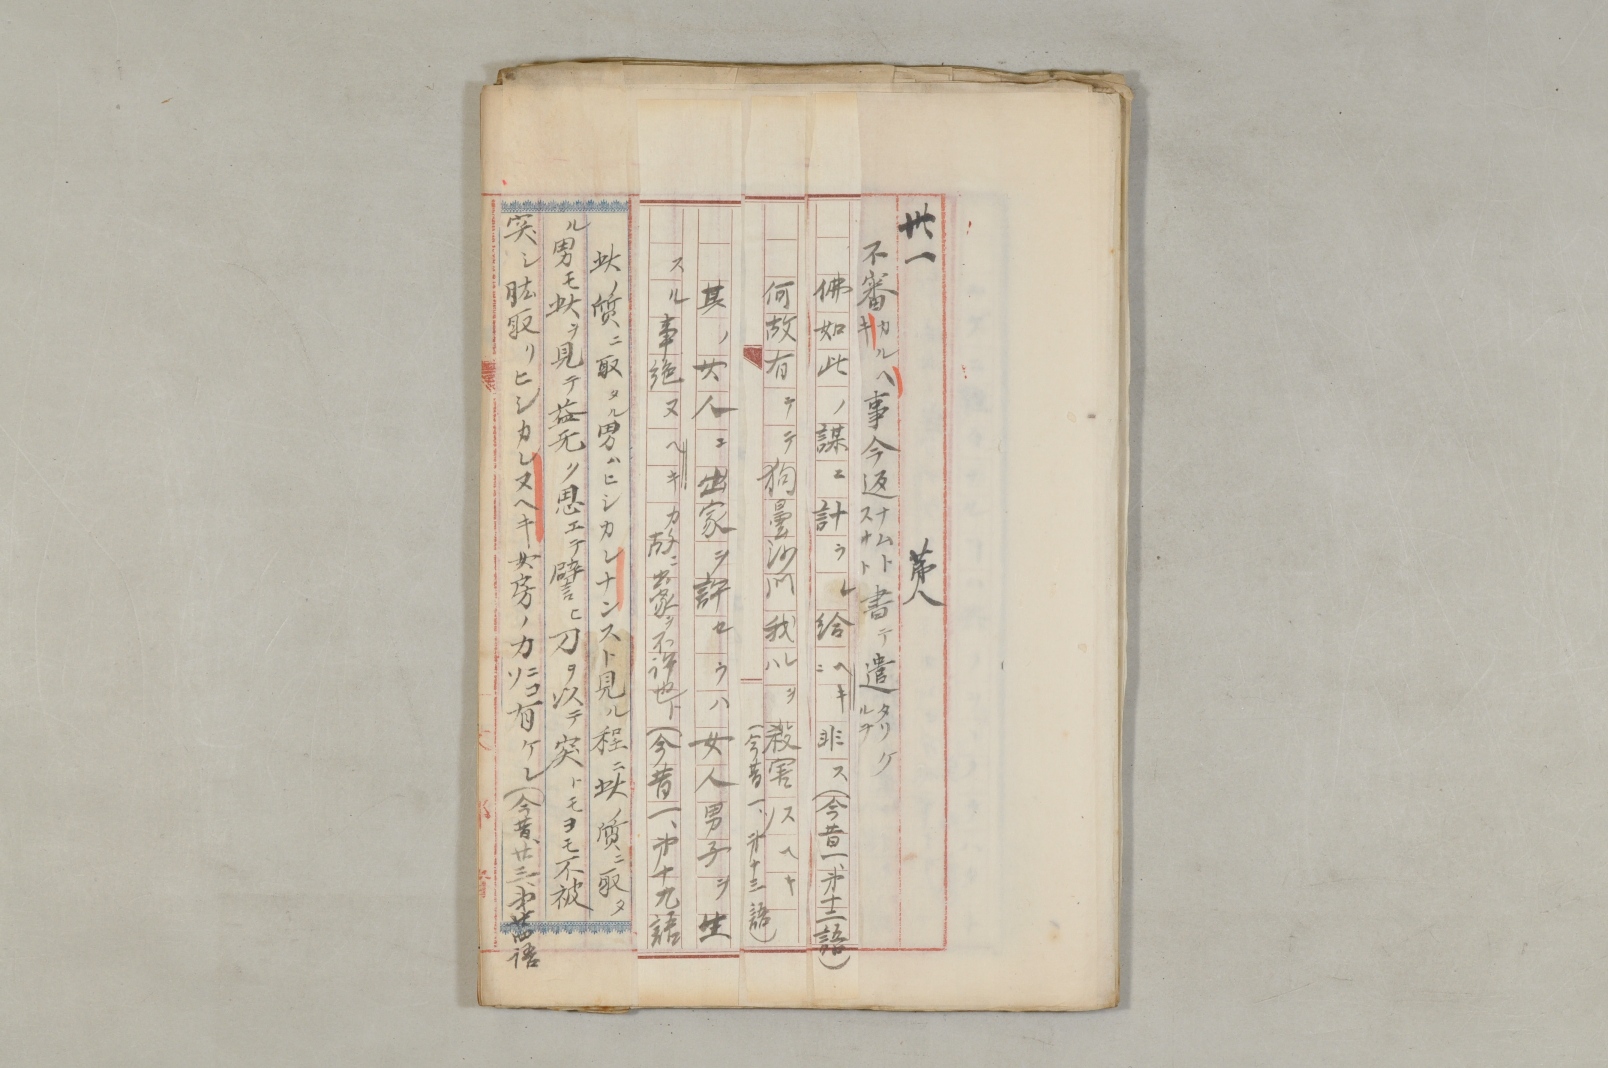 卅一
第八
不審カルヘキ事今返ナムトスナト書テ遣タリケルヲ
佛如此ノ謀ニ計ラレ給ヘキニ非ス(今昔一、第十二語)
何故有テテ狗曇沙門我ルヲ殺害スヘキ
(今昔一、第十三語)
其ノ女人ニ出家ヲ許セラハ女人男子ヲ生
スル事絶ヌヘキカ故ニ出家ヲ不許也ト(今昔一、第十九語
此ノ質ニ取タル男ハヒシカレナンスト見ル程ニ此ノ質ニ取タ
ル男モ此ヲ見テ益无ク思エテ譬ヒ刀ヲ以テ突トモヨモ不被
突シ肱取リヒシカレヌヘキ女房ノ力ニコソ有ケレ(今昔、廿三、第廿四語